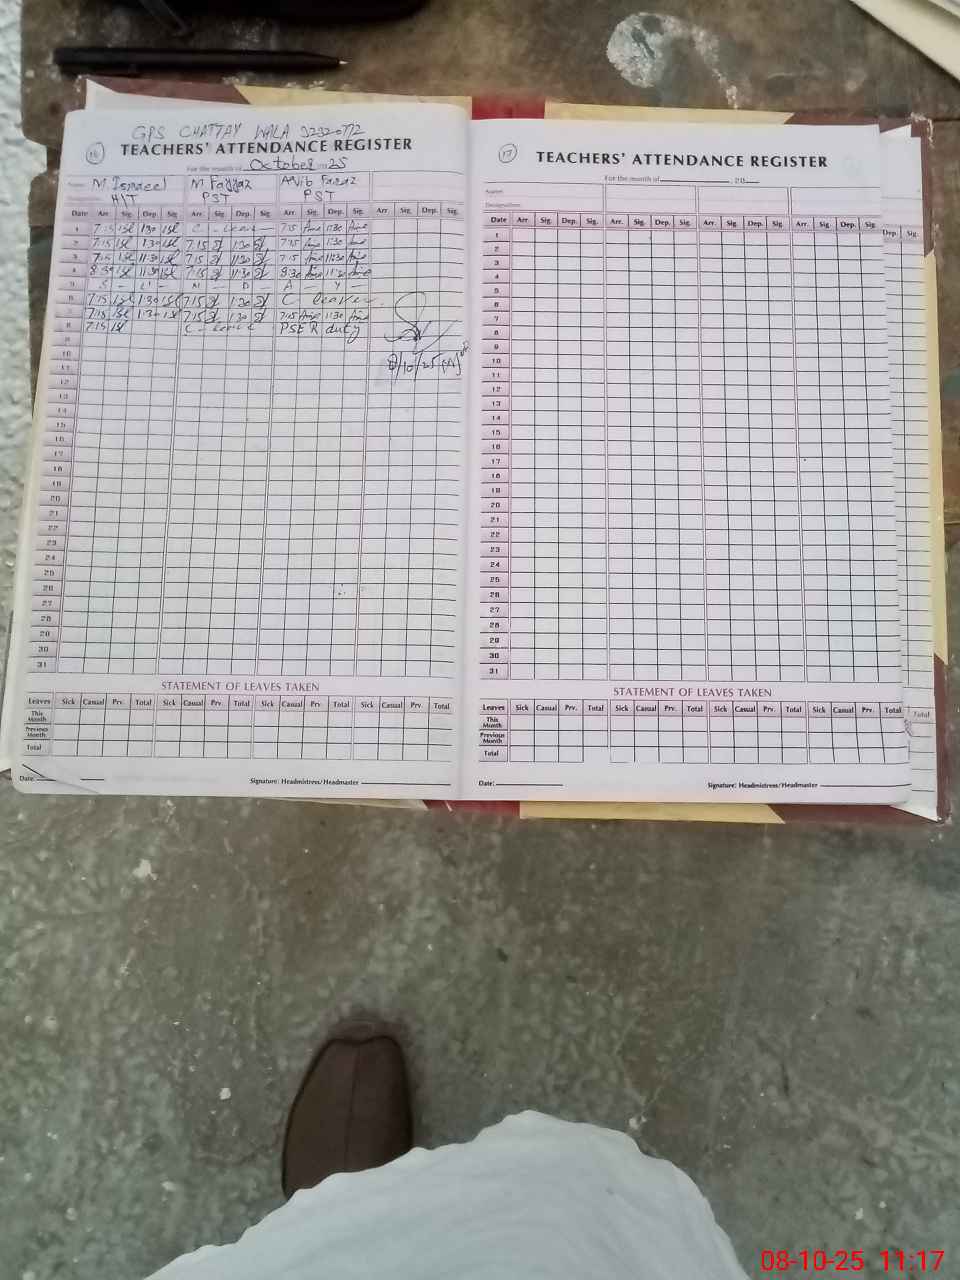 GPS CHATTAY WALA
16
TEACHERS' ATTENDANCE REGISTER
For the month of October 2025
Name: M. Ismaeel M Fayyaz Aqib Faraz
Designation: H/T PST PST
Date Arr. Sig. Dep. Sig. Arr. Sig. Dep. Sig. Arr. Sig. Dep. Sig. Arr. Sig. Dep. Sig.
1 7:15 1:30 C - Leave - 7:15 1:30
2 7:15 1:30 7:15 1:30 7:15 1:30
3 7:15 11:30 7:15 11:30 7:15 11:30
4 8:30 11:30 7:15 11:30 8:30 11:30
5 S - U - N - D - A - Y -
6 7:15 1:30 7:15 1:30 C - Leave
7 7:15 1:30 7:15 1:30 7:15 1:30
8 7:15 C - Leave PSER duty
9
10
11 8/10/25
12
13
14
15
16
17
18
19
20
21
22
23
24
25
26
27
28
29
30
31
STATEMENT OF LEAVES TAKEN
Leaves Sick Casual Prv. Total Sick Casual Prv. Total Sick Casual Prv. Total Sick Casual Prv. Total
This Month
Previous Month
Total
Date: Signature: Headmistress/Headmaster
17
TEACHERS' ATTENDANCE REGISTER
For the month of , 20
Name:
Designation:
Date Arr. Sig. Dep. Sig. Arr. Sig. Dep. Sig. Arr. Sig. Dep. Sig. Arr. Sig. Dep. Sig.
1
2
3
4
5
6
7
8
9
10
11
12
13
14
15
16
17
18
19
20
21
22
23
24
25
26
27
28
29
30
31
STATEMENT OF LEAVES TAKEN
Leaves Sick Casual Prv. Total Sick Casual Prv. Total Sick Casual Prv. Total Sick Casual Prv. Total
This Month
Previous Month
Total
Date: Signature: Headmistress/Headmaster
Dep. Sig.
Total
08-10-25 11:17